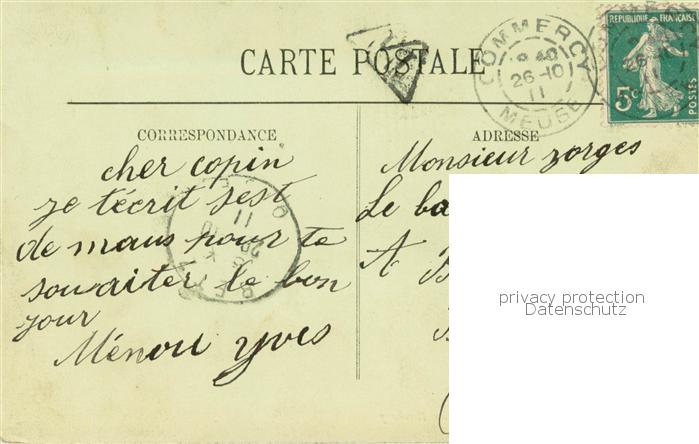 CARTE POSTALE
COMMERCY
26-10
11
MEUSE
REPUBLIQUE FRANÇAISE
5c
POSTES
CORRESPONDANCE
cher copin
je t'écrit sest
de maus pour te
souaiter le bon
jour
Ménou yves
ADRESSE
Monsieur zorges
Le ba
A
privacy protection
Datenschutz